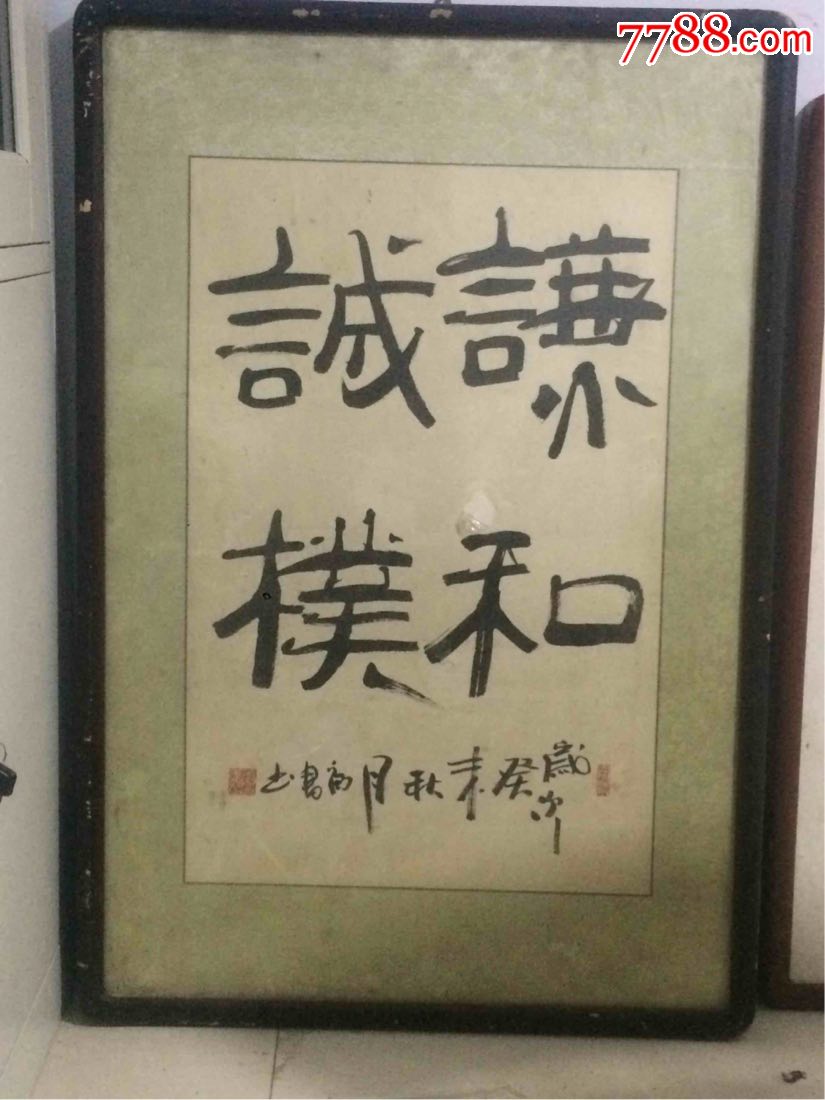 7788.com
謙和
誠樸
歲次癸未秋月
書